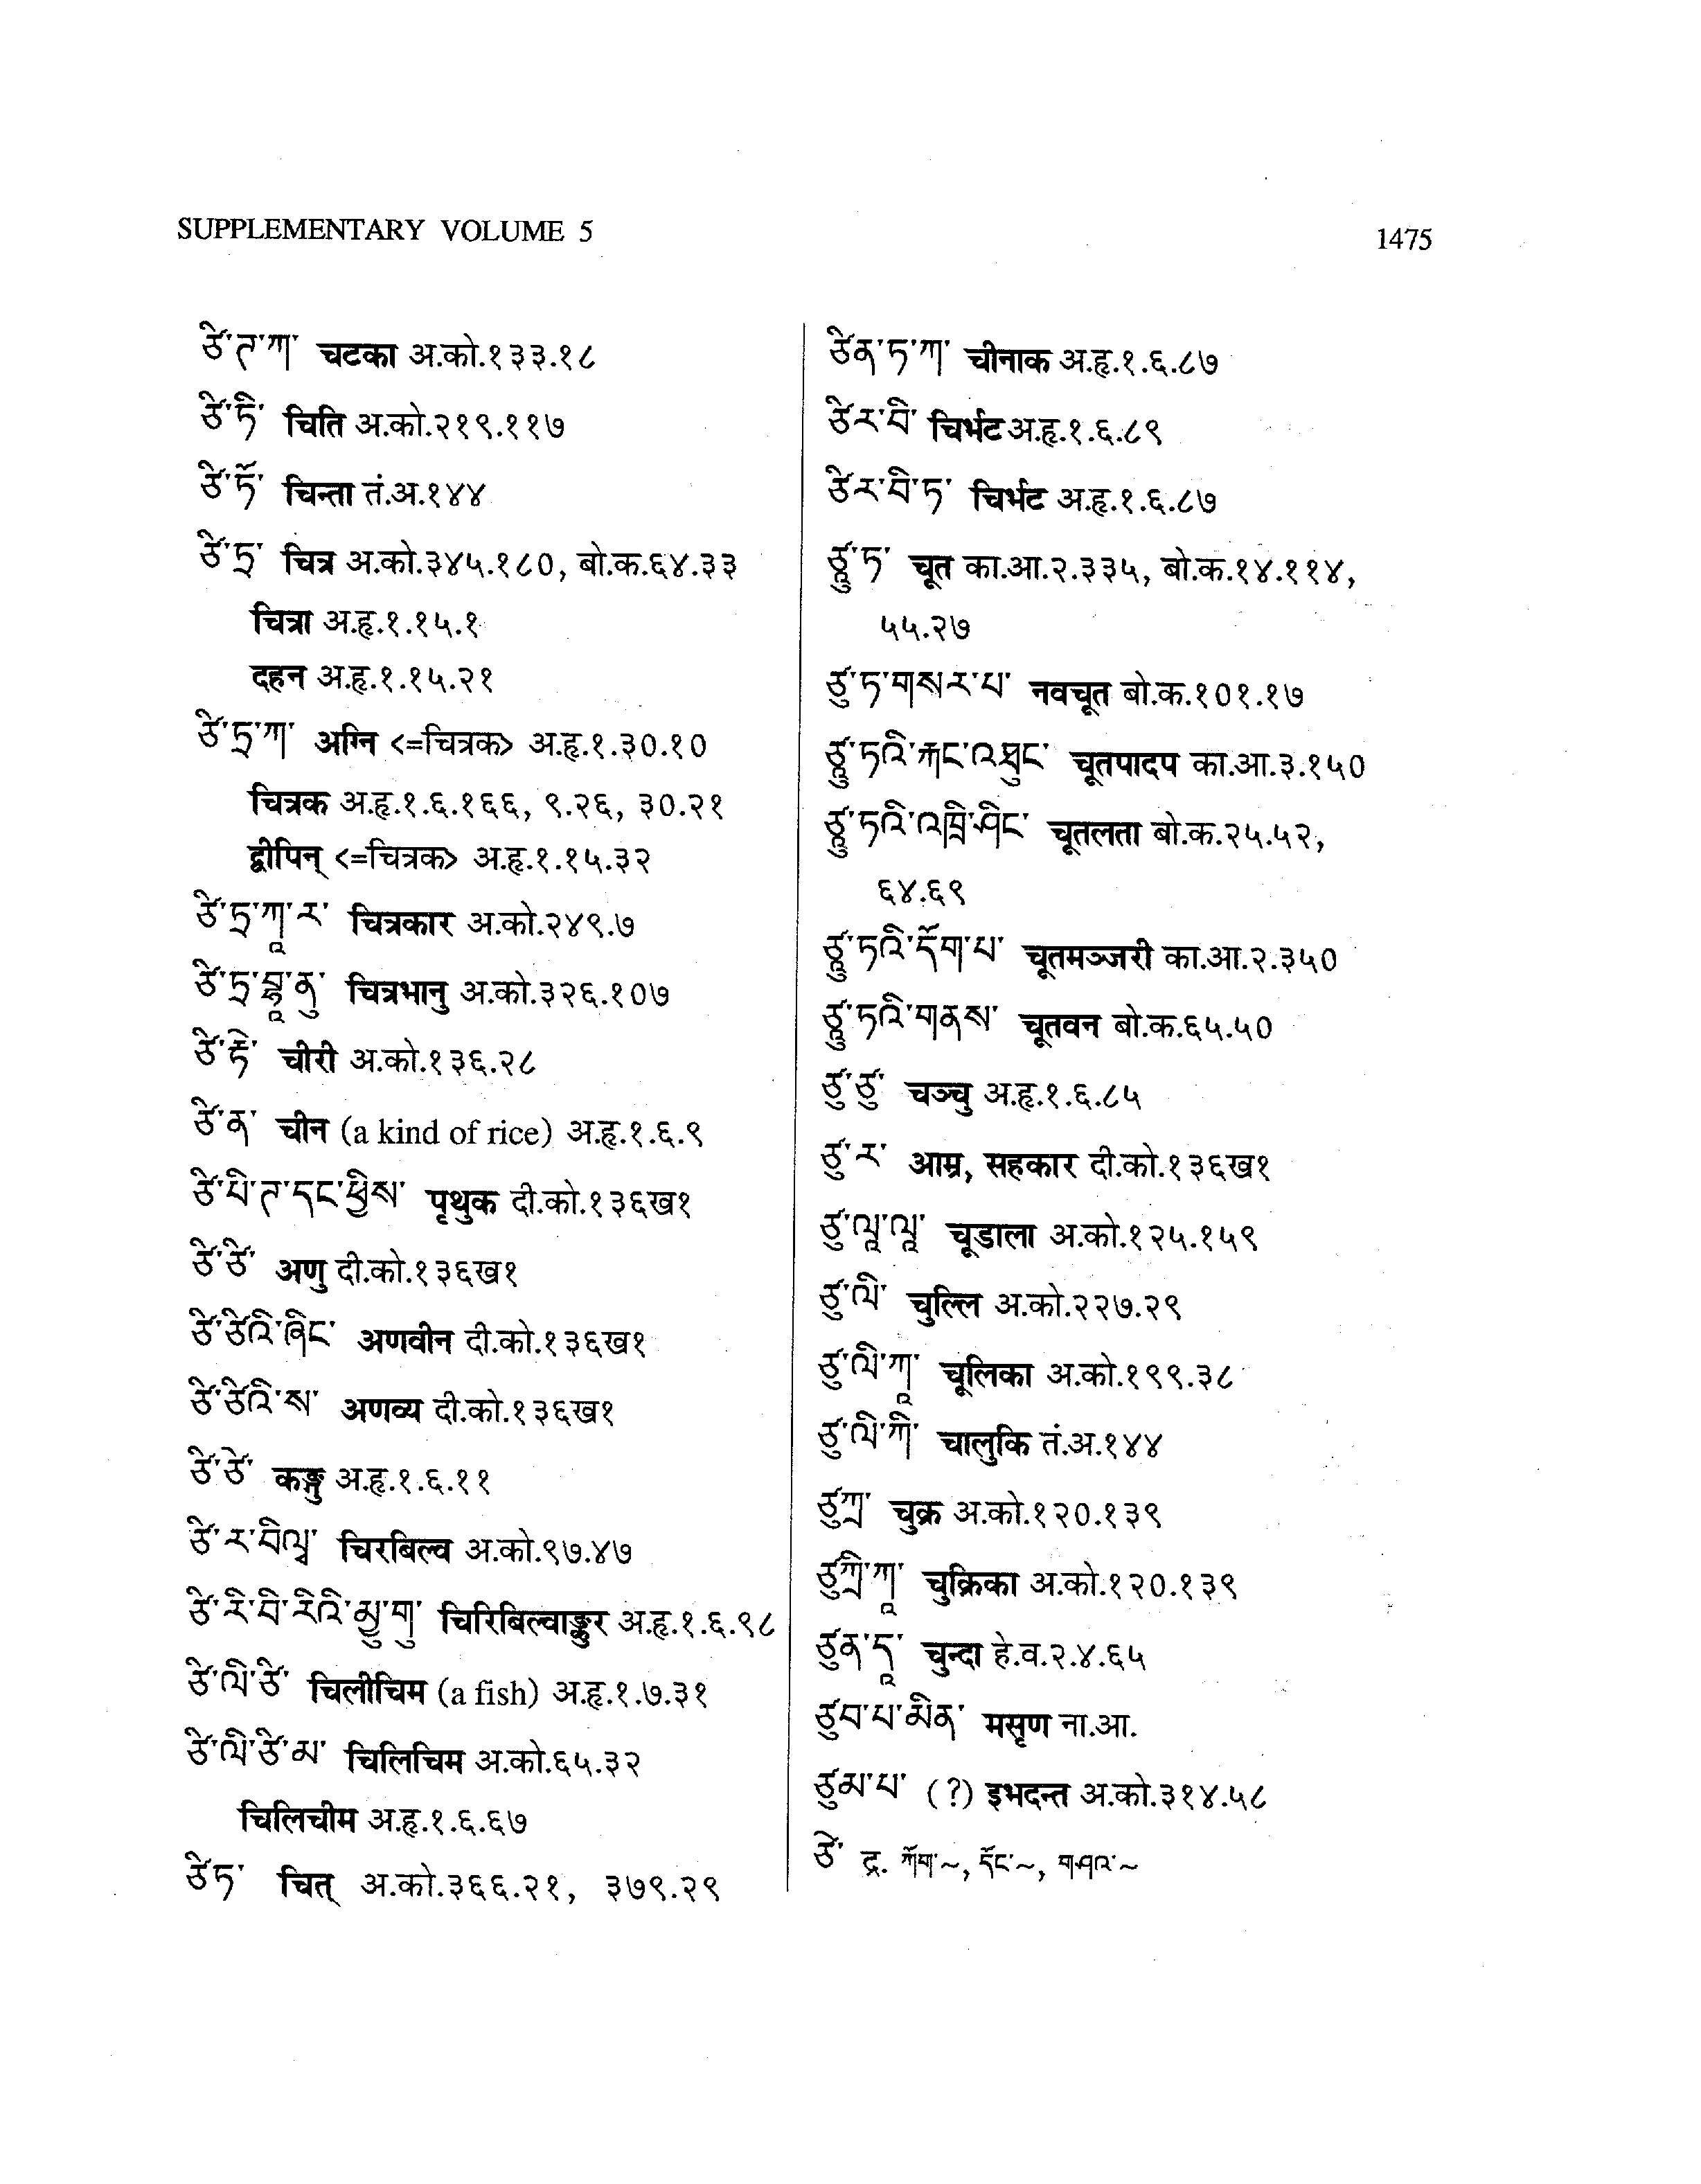 SUPPLEMENTARY VOLUME 5
1475
ཙི་ཊ་ཀ་ चटका अ.को.१३३.१८
ཙི་ཏི་ चिति अ.को.२१९.११७
ཙི་ཏོ་ चिन्ता तं.अ.१४४
ཙི་ཏྲ་ चित्र अ.को.३४५.१८०, बो.क.६४.३३
चित्रा अ.हृ.१.१५.१
दहन अ.हृ.१.१५.२१
ཙི་ཏྲ་ཀ་ अग्नि <=चित्रक> अ.हृ.१.३०.१०
चित्रक अ.हृ.१.६.१६६, ९.२६, ३०.२१
द्वीपिन् <=चित्रक> अ.हृ.१.१५.३२
ཙི་ཏྲ་ཀཱ་ར་ चित्रकार अ.को.२४९.७
ཙི་ཏྲ་བྷཱ་ནུ་ चित्रभानु अ.को.३२६.१०७
ཙི་ཏེ་ चीरी अ.को.१३६.२८
ཙི་ན་ चीन (a kind of rice) अ.हृ.१.६.९
ཙི་པི་ཊ་དང་ཕྱིས་ पृथुक दी.को.१३६ख१
ཙི་ཙི་ अणु दी.को.१३६ख१
ཙི་ཙིའི་ཞིང་ अणवीन दी.को.१३६ख१
ཙི་ཙིའི་ས་ अणव्य दी.को.१३६ख१
ཙི་ཙེ་ कङ्गु अ.हृ.१.६.११
ཙི་ར་བིལྦ་ चिरबिल्व अ.को.९७.४७
ཙི་རི་བི་རིའི་མྱུ་གུ་ चिरिबिल्वाङ्कुर अ.हृ.१.६.९८
ཙི་ལི་ཙི་ चिलीचिम (a fish) अ.हृ.१.७.३१
ཙི་ལི་ཙི་མ་ चिलिचिम अ.को.६५.३२
चिलिचीम अ.हृ.१.६.६७
ཙིཏ་ चित् अ.को.३६६.२१, ३७९.२९
ཙིན་ཏ་ཀ་ चीनाक अ.हृ.१.६.८७
ཙིར་བི་ चिर्भट अ.हृ.१.६.८९
ཙིར་བི་ཏ་ चिर्भट अ.हृ.१.६.८७
ཙཱུ་ཏ་ चूत का.आ.२.३३५, बो.क.१४.११४,
५५.२७
ཙུ་ཏ་གསར་པ་ नवचूत बो.क.१०१.१७
ཙཱུ་ཏའི་རྐང་འཐུང་ चूतपादप का.आ.३.१५०
ཙཱུ་ཏའི་འཁྲི་ཤིང་ चूतलता बो.क.२५.५२,
६४.६९
ཙཱུ་ཏའི་དོག་པ་ चूतमञ्जरी का.आ.२.३५०
ཙཱུ་ཏའི་གནས་ चूतवन बो.क.६५.५०
ཙུ་ཙུ་ चञ्चु अ.हृ.१.६.८५
ཙུ་ར་ आम्र, सहकार दी.को.१३६ख१
ཙུ་ལཱ་ལཱ་ चूडाला अ.को.१२५.१५९
ཙུ་ལི་ चुल्लि अ.को.२२७.२९
ཙུ་ལི་ཀཱ་ चूलिका अ.को.१९९.३८
ཙུ་ལི་ཀི་ चालुकि तं.अ.१४४
ཙུཀྲ་ चुक्र अ.को.१२०.१३९
ཙུཀྲི་ཀཱ་ चुक्रिका अ.को.१२०.१३९
ཙུན་དཱ་ चुन्दा हे.व.२.४.६५
ཙུབ་པ་མིན་ मसृण ना.आ.
ཙུམ་པ་ (?) इभदन्त अ.को.३१४.५८
ཙེ་ द्र. ཀོག་~, དོང་~, གཤའ་~